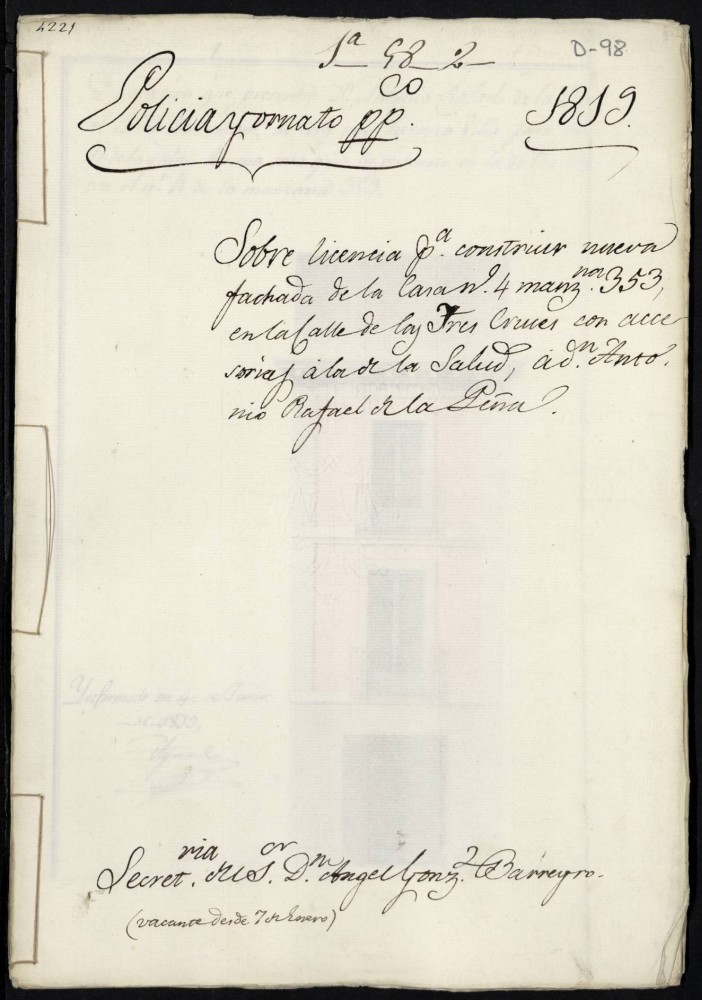 4221
1ª 58 2
D-98
Policia y ornato ppco. 1819.
Sobre licencia pª. construir nueva
fachada de la Casa nº. 4 manzna. 353,
en la Calle de las Tres Cruces con acce
sorias á la de la Salud, á dn. Anto.
nio Rafael de la Peña.
Secretria. del Sor. Dn. Angel Gonzz. Barreyro.
(vacante desde 7 de Enero)